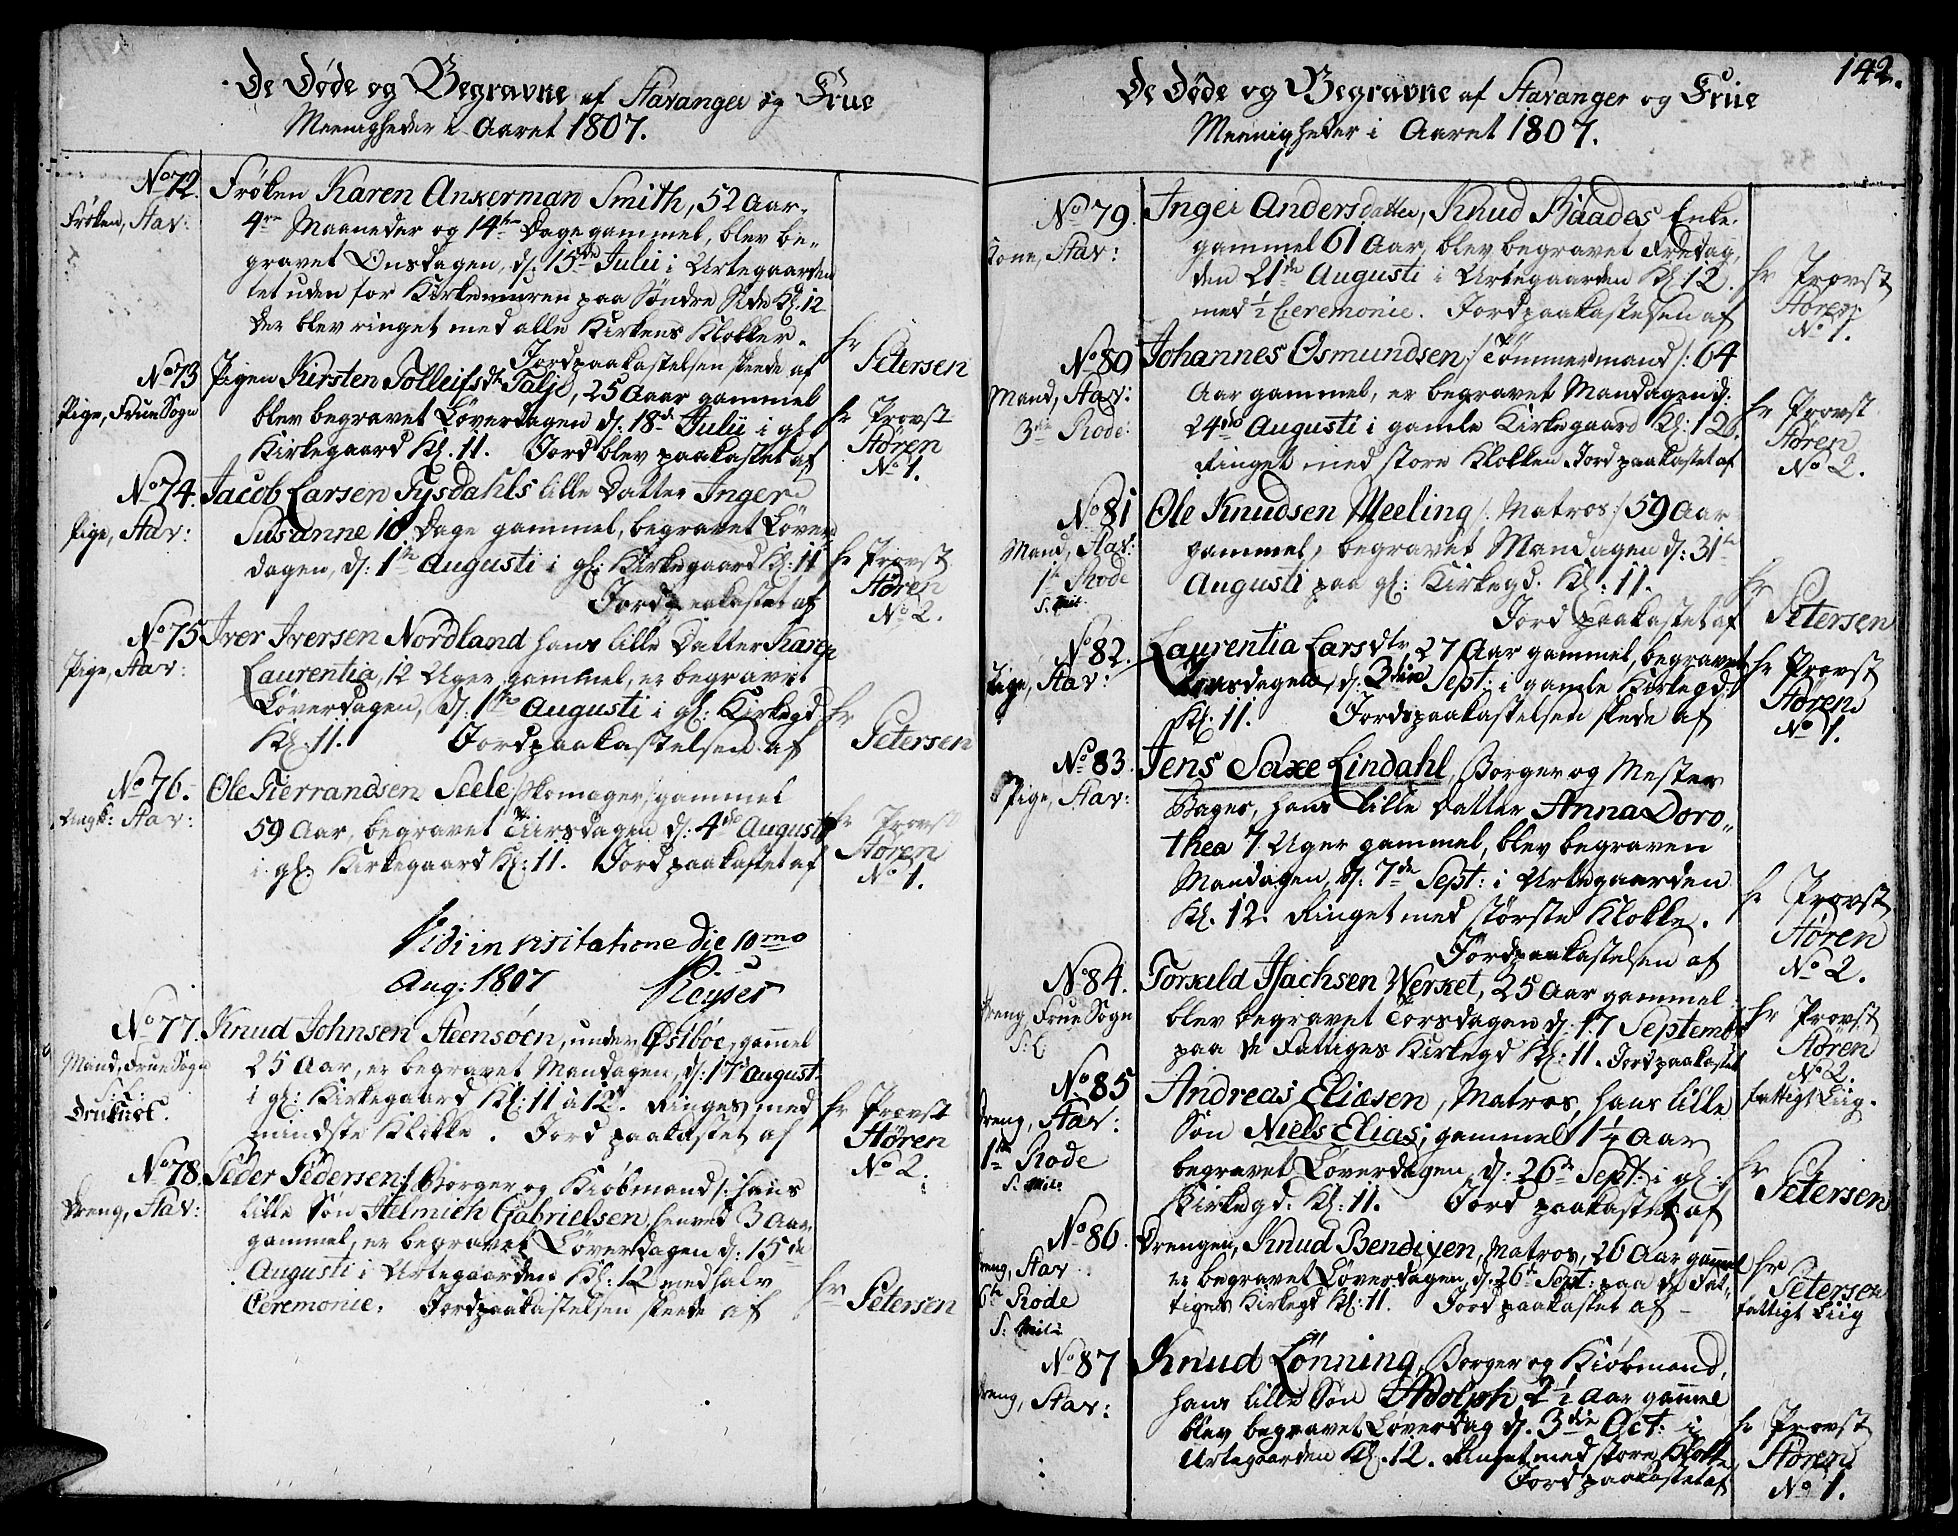 De Døde og Begravne af Stavanger og Frue
Meenigheder i Aaret 1807.
No 72. Frøken Karen Ankerman Smith, 52 Aar,
Frøken, Stav: 4re Maaneder og 14ten Dage gammel, blev be-
gravet Onsdagen, d: 15de Julii i Urtegaarden
tet uden for Kirkemuren paa Søndre Side Kl: 12
Der blev ringet med alle Kirkens Klokker.
Jordpaakastelsen skeede af hr Petersen
No 73 Pigen Kirsten Tolleifsdr Talje, 25 Aar gammel
Pige, Frue Sogn blev begravet Løverdagen d: 18de Julii i gl: hr Provst
Kirkegaard Kl. 11. Jord blev paakastet af Støren
No 1.
No 74. Jacob Larsen Tysdahls lille Datter Inger
Pige, Stav: Susanne 10 Dage gammel, begravet Løver
dagen, d: 1te Augusti i gl: Kirkegaard Kl: 11 hr Provst
Jord paakastet af Støren
No 2.
No 75 Iver Iversen Nordland hans lille Datter Karen
Pige, Stav: Laurentia, 12 Uger gammel, er begravet
Løverdagen, d: 1te Augusti i gl: Kirkegd
Kl. 11. Jordpaakastelsen af hr Petersen
No 76. Ole Tierrandsen Seele /: Skomager :/ gammel
Stav: 59 Aar, begravet Tiirsdagen d: 4de Augusti hr Provst
i gl: Kirkegaard Kl: 11. Jord paakastet af Støren
No 1.
Vidi in visitatione die 10mo
Aug: 1807 Keyser
No 77. Knud Johnsen Steensøen, under Østbøe, gammel
Mand, Frue Sogn 25 Aar, er begravet Mandagen, d: 17de August:
S: L: i gl: Kirkegaard Kl: 11 à 12. Ringes med hr Provst
Druknet. mindste Klokke. Jord paakastet af Støren
No 2.
No 78. Peder Pedersen /: Borger og Kiøbmand :/ hans
Dreng, Stav: lille Søn Helmich Gabrielsen, henved 3 Aar
gammel, er begravet Løverdagen d: 15de
Augusti i Urtegaarden Kl: 12 med halv
Ceremonie. Jordpaakastelsen skeede af hr Petersen
142.
De Døde og Begravne af Stavanger og Frue
Meenigheder i Aaret 1807.
No 79. Inger Andersdatter, Knud Raades Enke.
Kone, Stav: gammel 61 Aar, blev begravet Fredag,
den 21de Augusti i Urtegaarden Kl: 12. hr Provst
med ½ Ceremonie. Jordpaakastelsen af Støren
No 1.
No 80 Johannes Osmundsen /: Tømmermand :/ 64
Mand, Stav: Aar gammel, er begravet Mandagen d: hr Provst
3die Rode: 24de Augusti i gamle Kirkegaard Kl: 12. Støren
Ringet med store Klokken Jord paakastet af No 2.
No 81 Ole Knudsen Meeling /: Matros :/ 59 Aar
Mand, Stav: gammel, begravet Mandagen d: 31te
1te Rode Augusti paa gl: Kirkegd. Kl: 11.
S: Mil: Jord paakastet af hr Petersen
No 82. Laurentia Larsdtr, 27 Aar gammel, begravet hr Provst
Pige, Stav: Torsdagen, d: 3die Sept: i gamle Kirkegd: Støren
Kl. 11. Jordspaakastelsen skede af No 1.
No 83. Jens Saxe Lindahl, Borger og Mester
Pige, Stav: Bager, hans lille Datter Anna Doro-
thea 7 Uger gammel, blev begraven
Mandagen, d: 7de Sept: i Urtegaarden hr Provst
Kl. 12. Ringet med største Klokke. Støren
Jordpaakastelsen af No 2.
No 84. Torkild Isachsen Werket, 25 Aar gammel
Dreng, Frue Sogn blev begravet Torsdagen d: 17 Septembr hr Provst
S: L: paa de Fattiges Kirkegd Kl: 11. Jordpaakastet Støren
No 2.
Fattigt Liig.
No 85 Andreas Eliasen, Matros, hans lille
Dreng, Stav: Søn Niels Elias, gammel 1¼ Aar
1te Rode begravet Løverdagen, d: 26de Sept: i gl:
S: Mil: Kirkegd. Kl: 11. Jord paakastet af hr Petersen
No 86. Drengen, Knud Bendixen, Matros, 26 Aar gammel hr
Dreng, Stav er begravet Løverdagen, d: 26de Sept: paa de Fat- Petersen
6te Rode tiges Kirkegd Kl: 11. Jord paakastet af Fattigt Liig
S: Mil:
No 87 Knud Lønning, Borger og Kiøbmand,
Dreng, Stav: hans lille Søn Adolph 2½ Aar gammel
blev begravet Løverdag d: 3die Oct: i hr Provst
Urtegaarden Kl. 12. Ringet med store Klokke Støren
Jord paakastet af No 1.